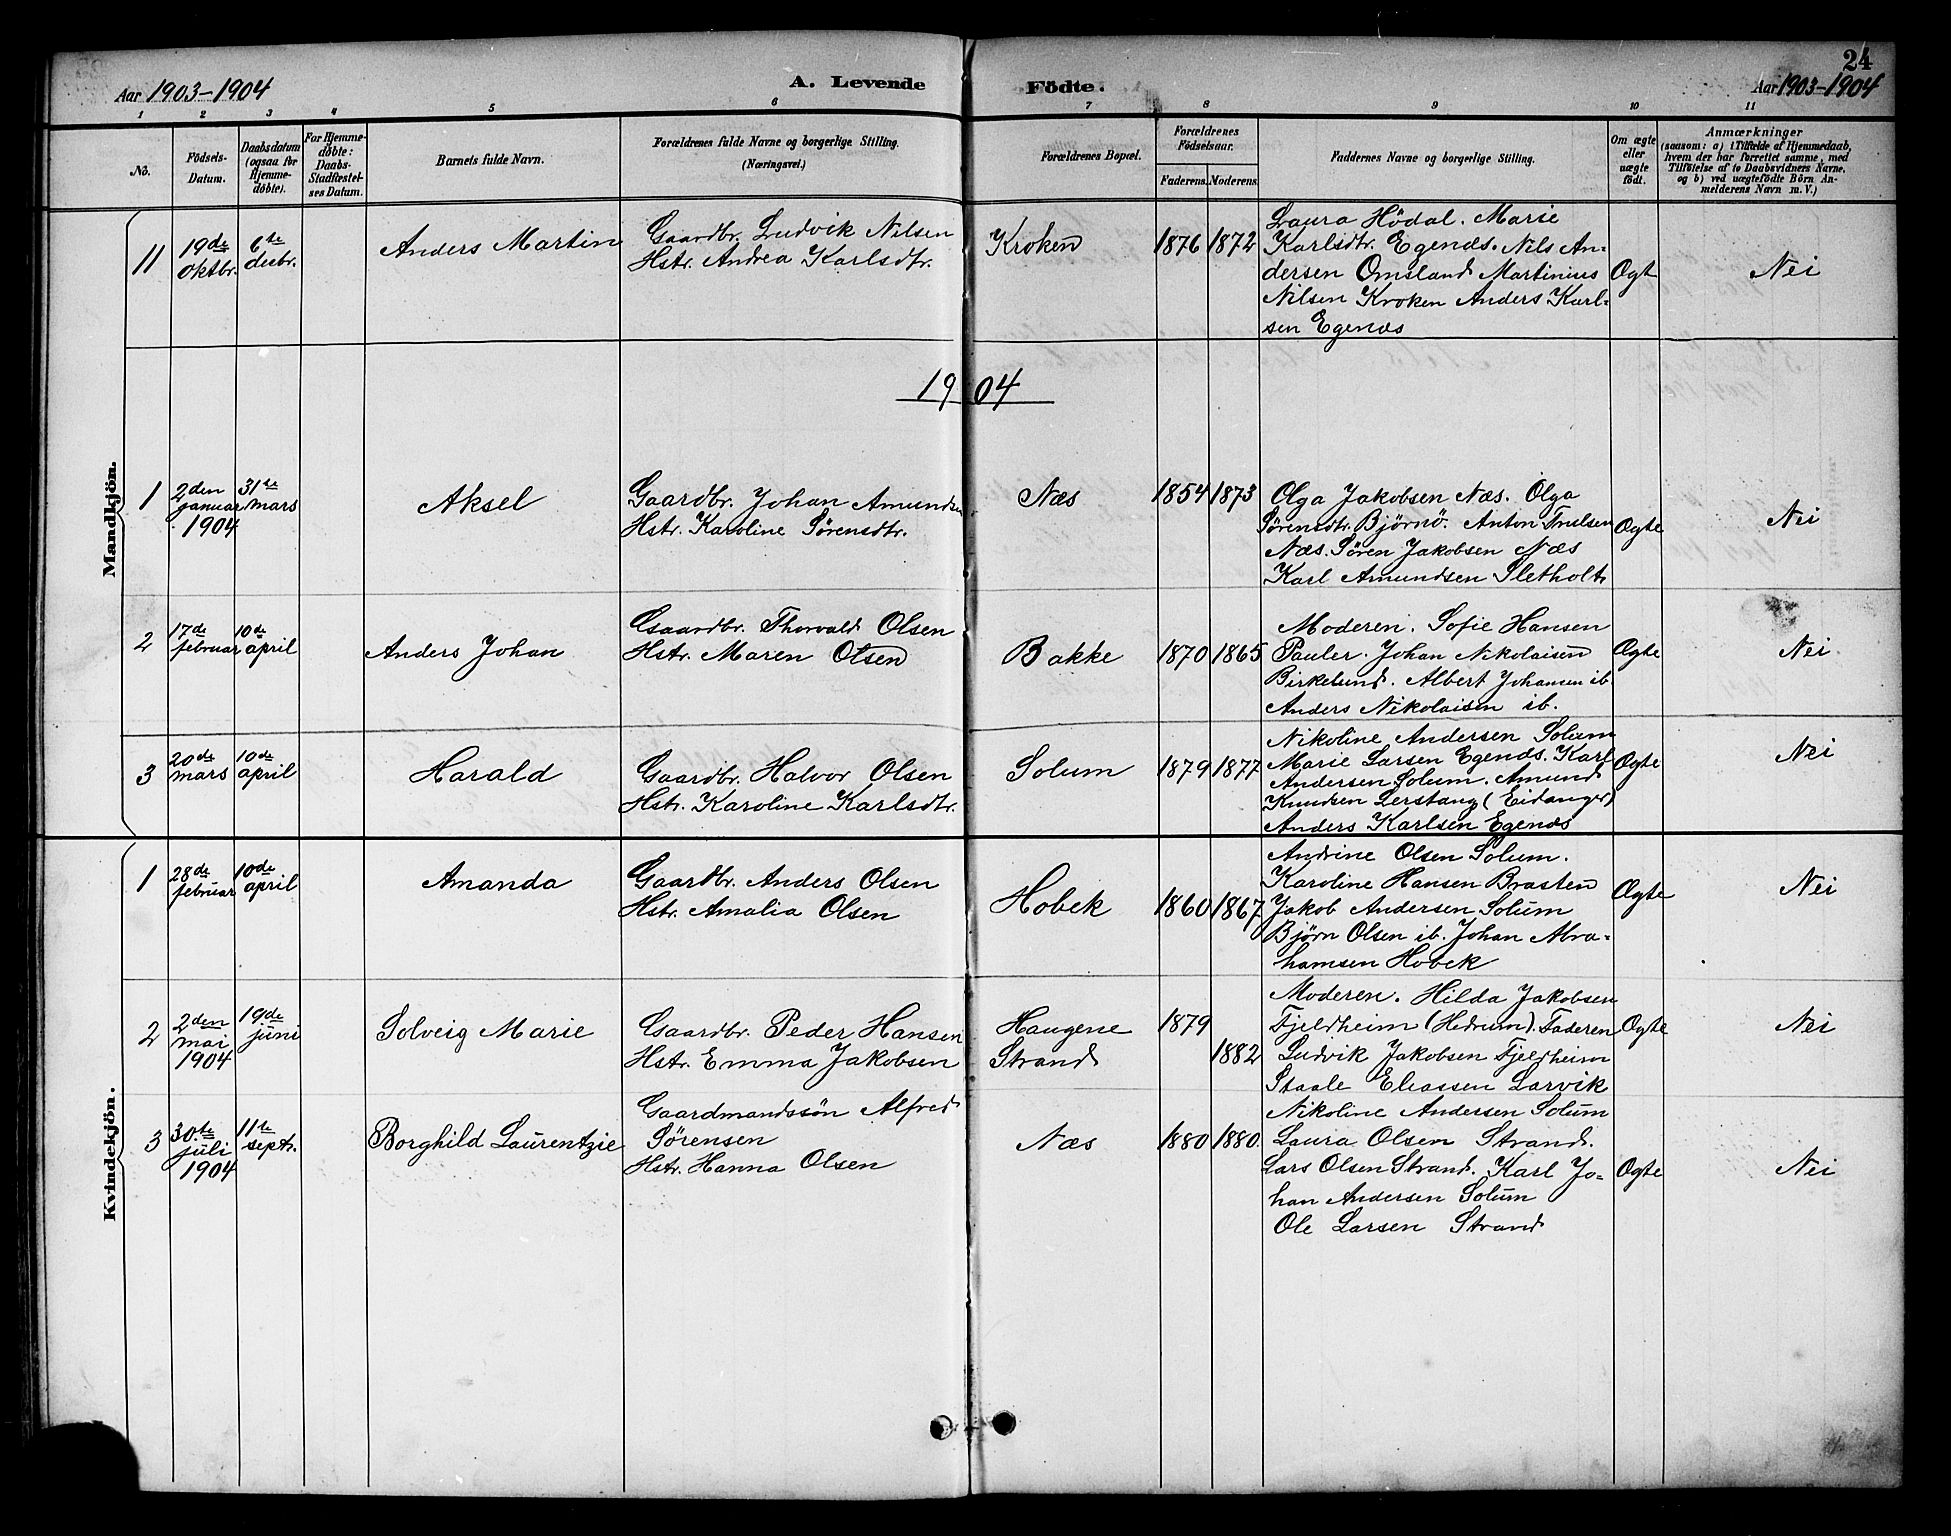 24
Aar 1903-1904
A. Levende Födte.
Aar 1903-1904
1 2 3 4 5 6 7 8 9 10 11
No.
Födsels-Datum.
Daabsdatum (ogsaa for Hjemme-døbte).
For Hjemme-døbte: Daabs-Stadfæstel-ses Datum.
Barnets fulde Navn.
Forældrenes fulde Navne og borgerlige Stilling.
(Næringsvei.)
Forældrenes Bopæl.
Forældrenes Födselsaar.
Faderens. Moderens.
Faddernes Navne og borgerlige Stilling.
Om ægte eller uægte födt.
Anmærkninger
(saasom: a) i Tilfælde af Hjemmedaab,
hvem der har forrettet samme, med
Tilföielse af to Daabsvidners Navne,
og b) ved uægtefödte Börn An-
melderens Navn m. V.)
Mandkjön.
11
19de oktbr.
6te desbr.
Anders Martin
Gaardbr. Ludvik Nilsen
Hstr. Andrea Karlsdtr.
Kroken
1876 1872
Laura Hödal. Marie
Karlsdtr. Egenæs. Nils An-
dersen Omsland Martinius
Nilsen Kroken Anders Karl-
sen Egenæs
Ogt
Nei
1904
1
2den januar 1904
31te mars
Aksel
Gaardbr. Johan Amundsen
Hstr. Karoline Sørensdtr.
Næs
1854 1873
Olga Jakobsen Næs. Olga
Sørensdtr. Bjørnö. Anton Trulsen
Næs. Søren Jakobsen Næs
Karl Amundsen Sletholt
Ogte
Nei
2
17de februar
10de april
Anders Johan
Gaardbr. Thorvald Olsen
Hstr. Maren Olsen
Bakke
1870 1865
Moderen. Sofie Hansen
Pauler. Johan Nikolaisen
Birkelund. Albert Johansen ib.
Anders Nikolaisen ib.
Ogte
Nei
3
20de mars
10de april
Harald
Gaardbr. Halvor Olsen
Hstr. Karoline Karlsdtr.
Solum
1879 1877
Nikoline Andersen Solum
Marie Larsen Egenæs. Karl
Andersen Solum. Amund
Knudsen Lerstang (Eidanger)
Anders Karlsen Egenæs
Ogte
Nei
Kvindekjön.
1
28de februar
10de april
Amanda
Gaardbr. Anders Olsen
Hstr. Amalia Olsen
Hobek
1860 1867
Andrine Olsen Solum.
Karoline Hansen Brasten
Jakob Andersen Solum
Bjørn Olsen ib. Johan Abra-
hamsen Hobek
Ogte
Nei
2
2den mai 1904
19de juni
Solveig Marie
Gaardbr. Peder Hansen
Hstr. Emma Jakobsen
Haugene
Strand
1879
1882
Moderen. Hilda Jakobsen
Fjeldheim (Hedrum). Faderen
Ludvik Jakobsen Fjeldheim
Staale Eliassen Larvik
Ogte
Nei
3
30te juli 1904
11te septr.
Borghild Laurentzie
Gaardmandssøn Alfred
Sörensen
Hstr. Hanna Olsen
Næs
1880 1880.
Nikoline Andersen Solum
Laura Olsen Strand.
Lars Olsen Strand. Karl Jo-
han Andersen Solum
Ole Larsen Strand
Ogte
Nei